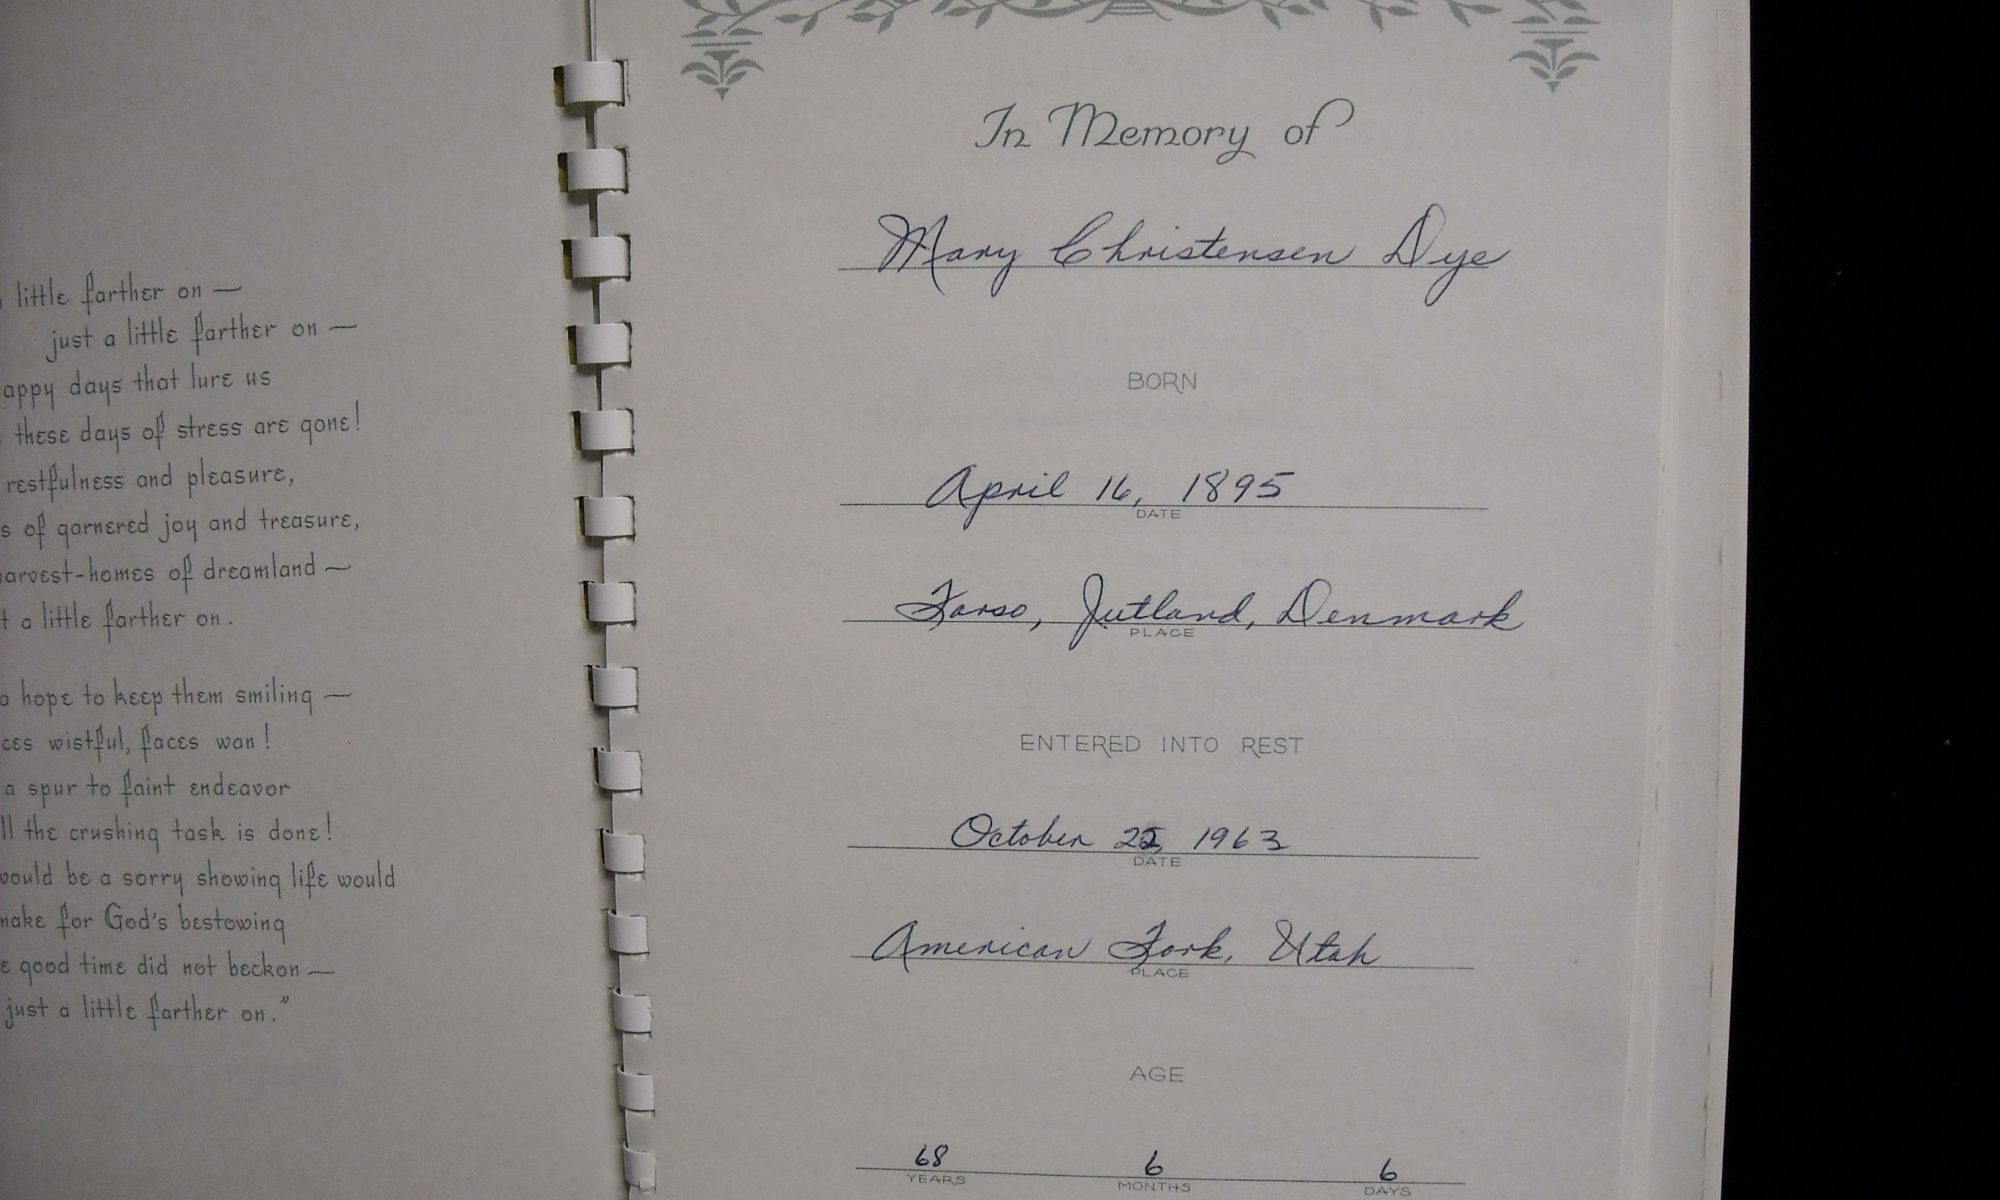 little farther on —
just a little farther on —
appy days that lure us
these days of stress are gone!
restfulness and pleasure,
s of garnered joy and treasure,
arvest-homes of dreamland —
t a little farther on.
a hope to keep them smiling —
ces wistful, faces wan!
a spur to faint endeavor
ll the crushing task is done!
would be a sorry showing life would
make for God's bestowing
e good time did not beckon —
just a little farther on."
In Memory of
Mary Christensen Dye
BORN
April 16, 1895
DATE
Farso, Jutland, Denmark
PLACE
ENTERED INTO REST
October 22, 1963
DATE
American Fork, Utah
PLACE
AGE
68 6 6
YEARS MONTHS DAYS